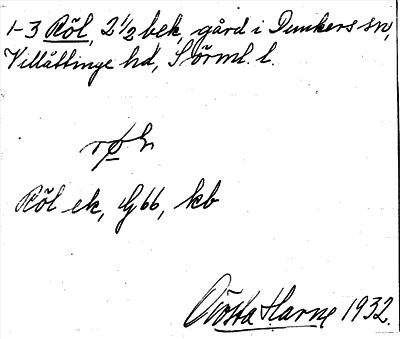 1-3 Röl, 2 1/2 bek, gård i Dunkers sn,
Villåttinge hd, Sörml. l.
Röl ek, G 66, kb
Gösta Harne 1932.